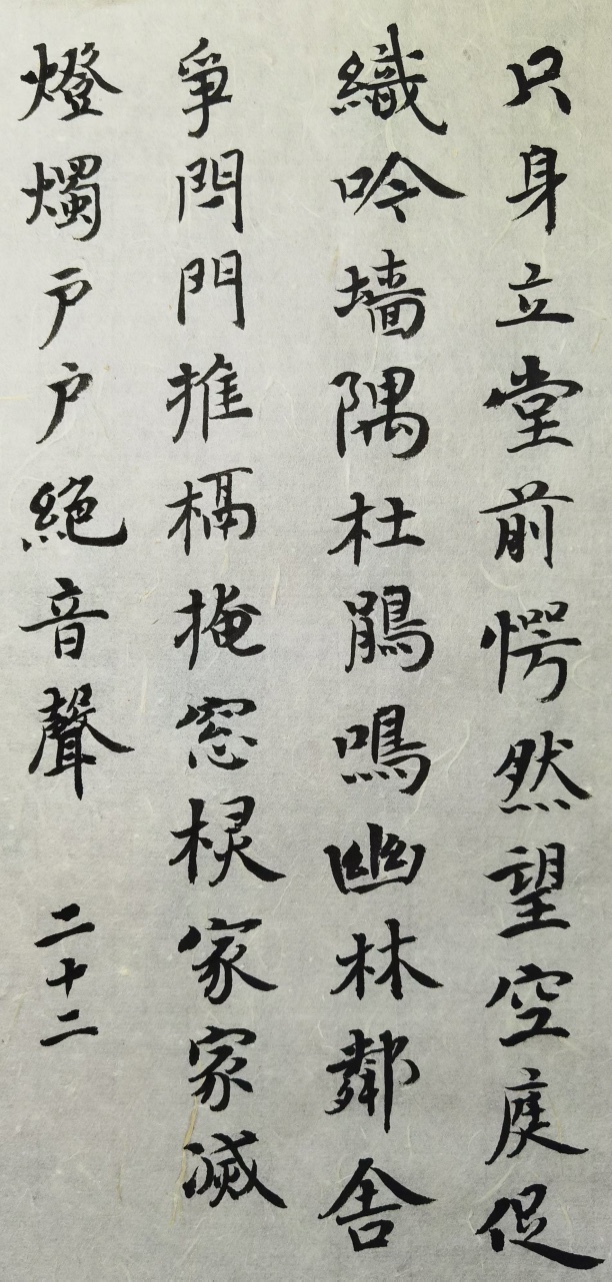 只身立堂前愕然望空庭促
織吟墙隅杜鵑鳴幽林鄰舍
爭閂門推槅掩窓棂家家滅
燈燭戶戶絶音聲 二十二